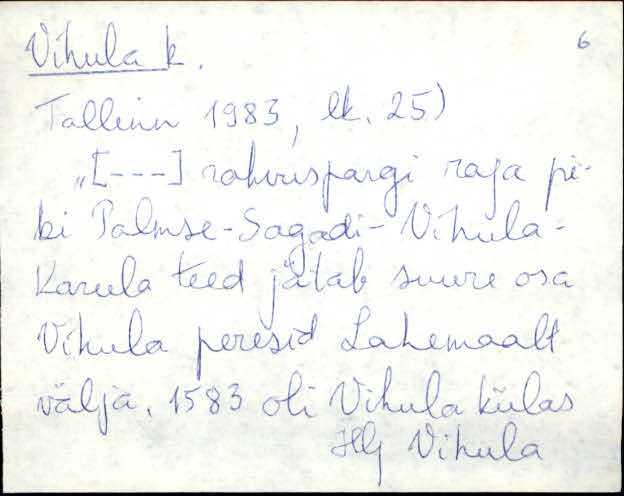 Vihula k. 6
Tallinn 1983, lk. 25)
„[---] rahvuspargi raja pi-
ki Palmse-Sagadi-Vihula-
Karula teed jätab suure osa
Vihula peresid Lahemaalt
välja. 1583 oli Vihula külas
Hlj Vihula